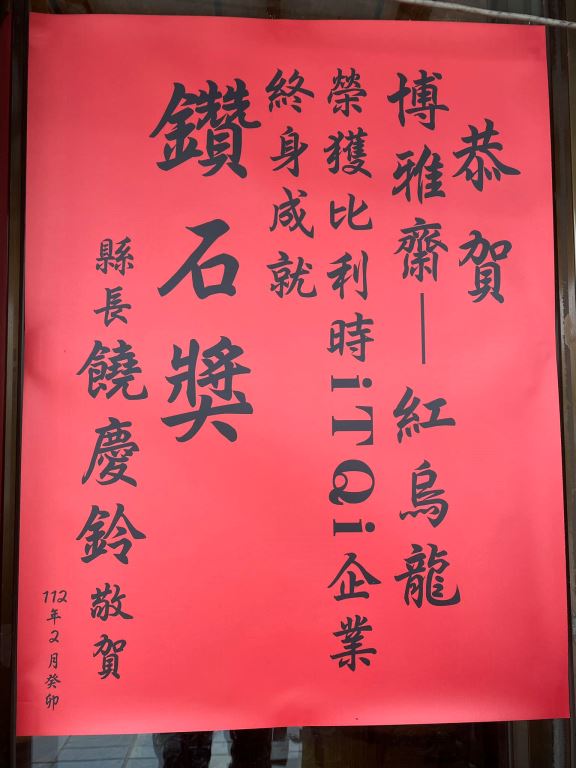 恭賀
博雅齋—紅烏龍
榮獲比利時iTQi企業
終身成就
鑽石獎
縣長饒慶鈴敬賀
112年2月癸卯